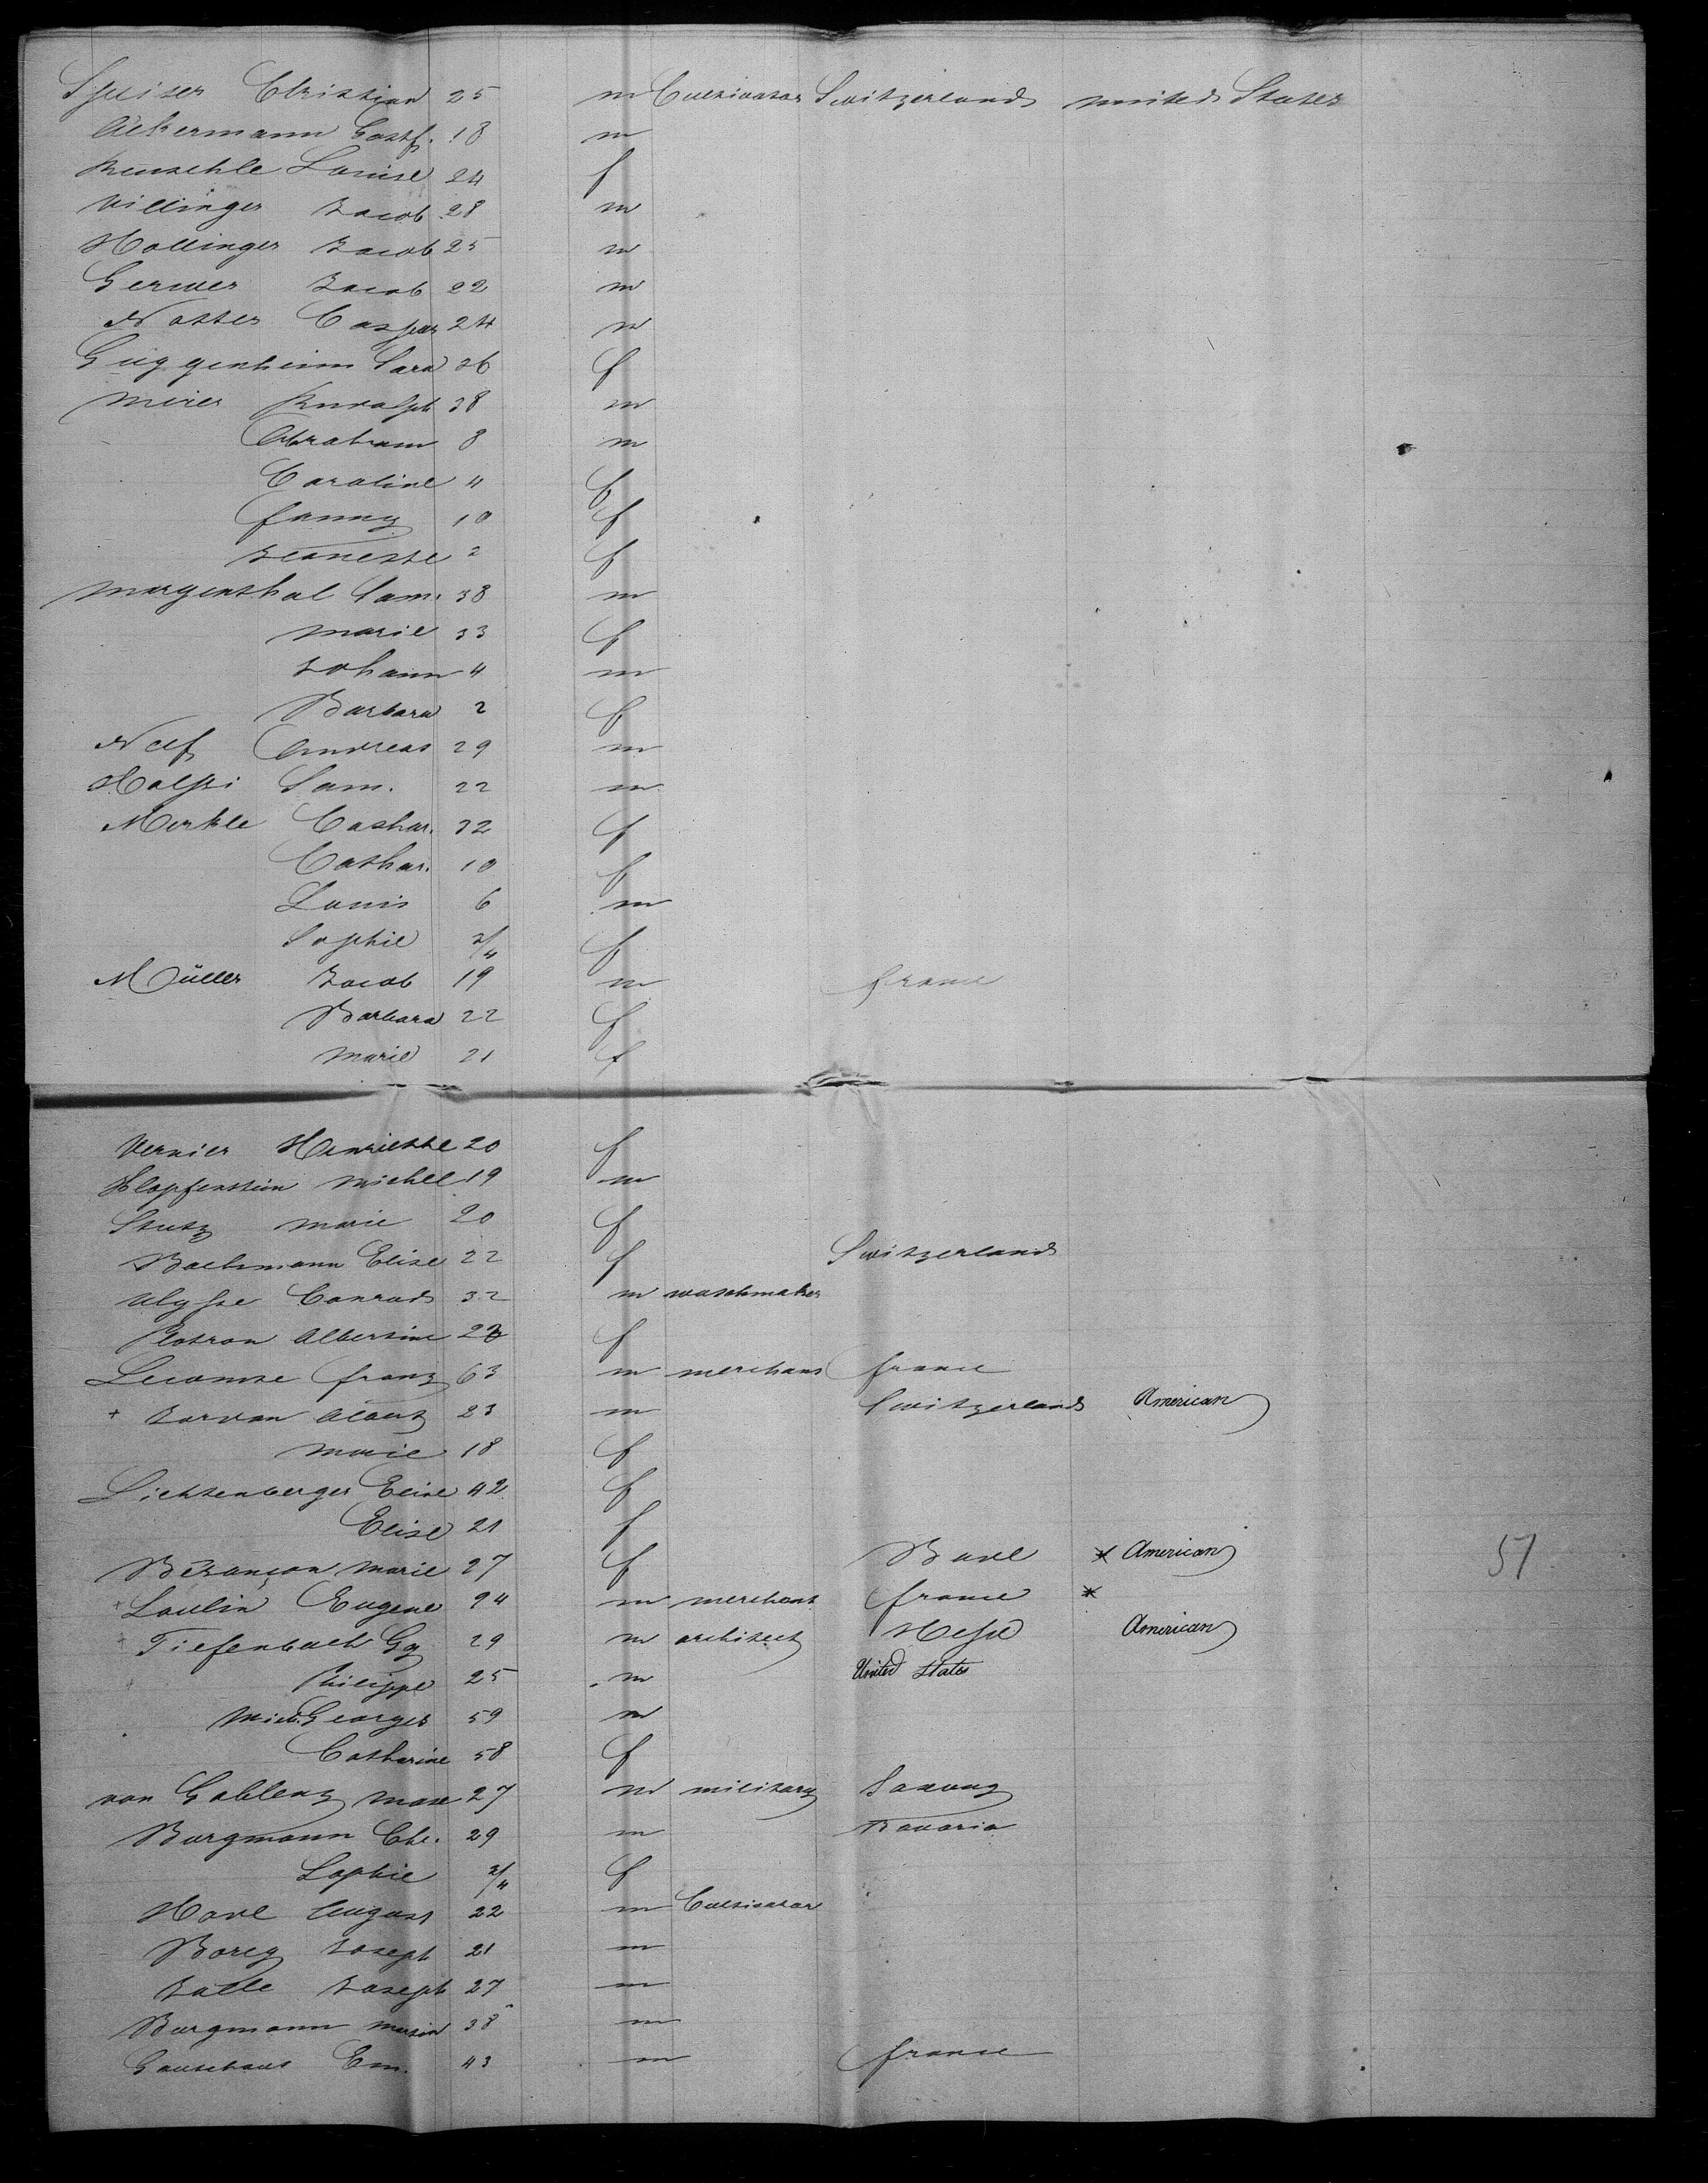 Speiser Christian 25 m Cultivator Switzerland united States
Ackermann Gottf. 18 m
Reuschle Louise 24 f
Villinger Jacob 28 m
Hollinger Jacob 25 m
Gerwer Jacob 22 m
Notter Caspar 24 m
Guggenheim Sara 36 f
Meier Rudolph 38 m
Abraham 8 m
Caroline 4 f
fanny 10 f
Jeanette 2 f
Morgenthal Sam. 38 m
Marie 33 f
Johann 4 m
Barbara 2 f
Naef Andreas 29 m
Haessi Sam. 22 m
Merkle Cathar. 32 f
Cathar. 10 f
Louis 6 m
Sophie 3/4 f
Müller Jacob 19 m france
Barbara 22 f
Marie 21 f
Vernier Henriette 20 f
Klopfenstein Michel 19 m
Stutz Marie 20 f
Bachmann Elise 22 f Switzerland
Ulysse Conrad 32 m watchmaker
Albertine f
Lecomte franz 63 m merchant france
+ Jordan Albert 23 m Switzerland American
Marie 18 f
Lichtenberger Elise 42 f
Elise 21 f
Besançon Marie 27 f Basel * American
+ Eugene 24 m merchant france *
+ Tiefenbach Gg 29 m architect Hesse American
Philippe 25 m United States
Mich. Georges 59 m
Catharine 58 f
von Gablenz Max 27 m military Saxony
Burgmann Chr. 29 m Bavaria
Sophie 3/4 f
August 22 m Cultivator
Joseph 21 m
Joseph 27 m
Burgmann Martin 38 m
Em. 43 m france
57